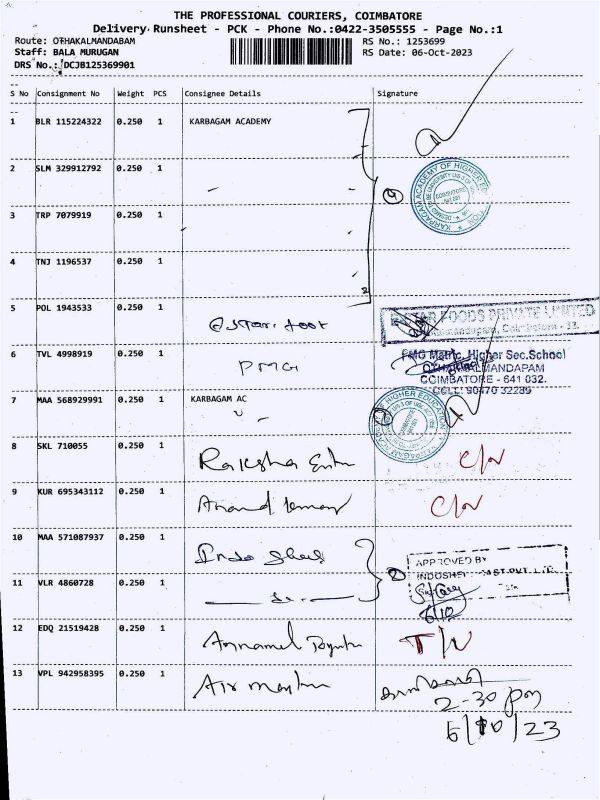 THE PROFESSIONAL COURIERS, COIMBATORE
Delivery Runsheet - PCK - Phone No.:0422-3505555 - Page No.:1
Route: OTHAKALMANDABAM
RS No.: 1253699
Staff: BALA MURUGAN
RS Date: 06-Oct-2023
DRS No.: DCJB125369901
S No Consignment No Weight PCS Consignee Details Signature
1 BLR 115224322 0.250 1 KARBAGAM ACADEMY
2 SLM 329912792 0.250 1
3 TRP 7079919 0.250 1
4 TNJ 1196537 0.250 1
5 POL 1943533 0.250 1
FOODS PRIVATE LIMITED
6 TVL 4998919 0.250 1 PMG
PMG Matric. Higher Sec.School
OTHAKALMANDAPAM
COIMBATORE - 641 032.
CELL: 90470 32289
7 MAA 568929991 0.250 1 KARBAGAM AC
8 SKL 710055 0.250 1 Raksha
9 KUR 695343112 0.250 1 Anand kumar
10 MAA 571087937 0.250 1 Indo shell
APPROVED BY
11 VLR 4860728 0.250 1
6/10
12 EDQ 21519428 0.250 1
13 VPL 942958395 0.250 1 Air
2-30 pm
6/10/23